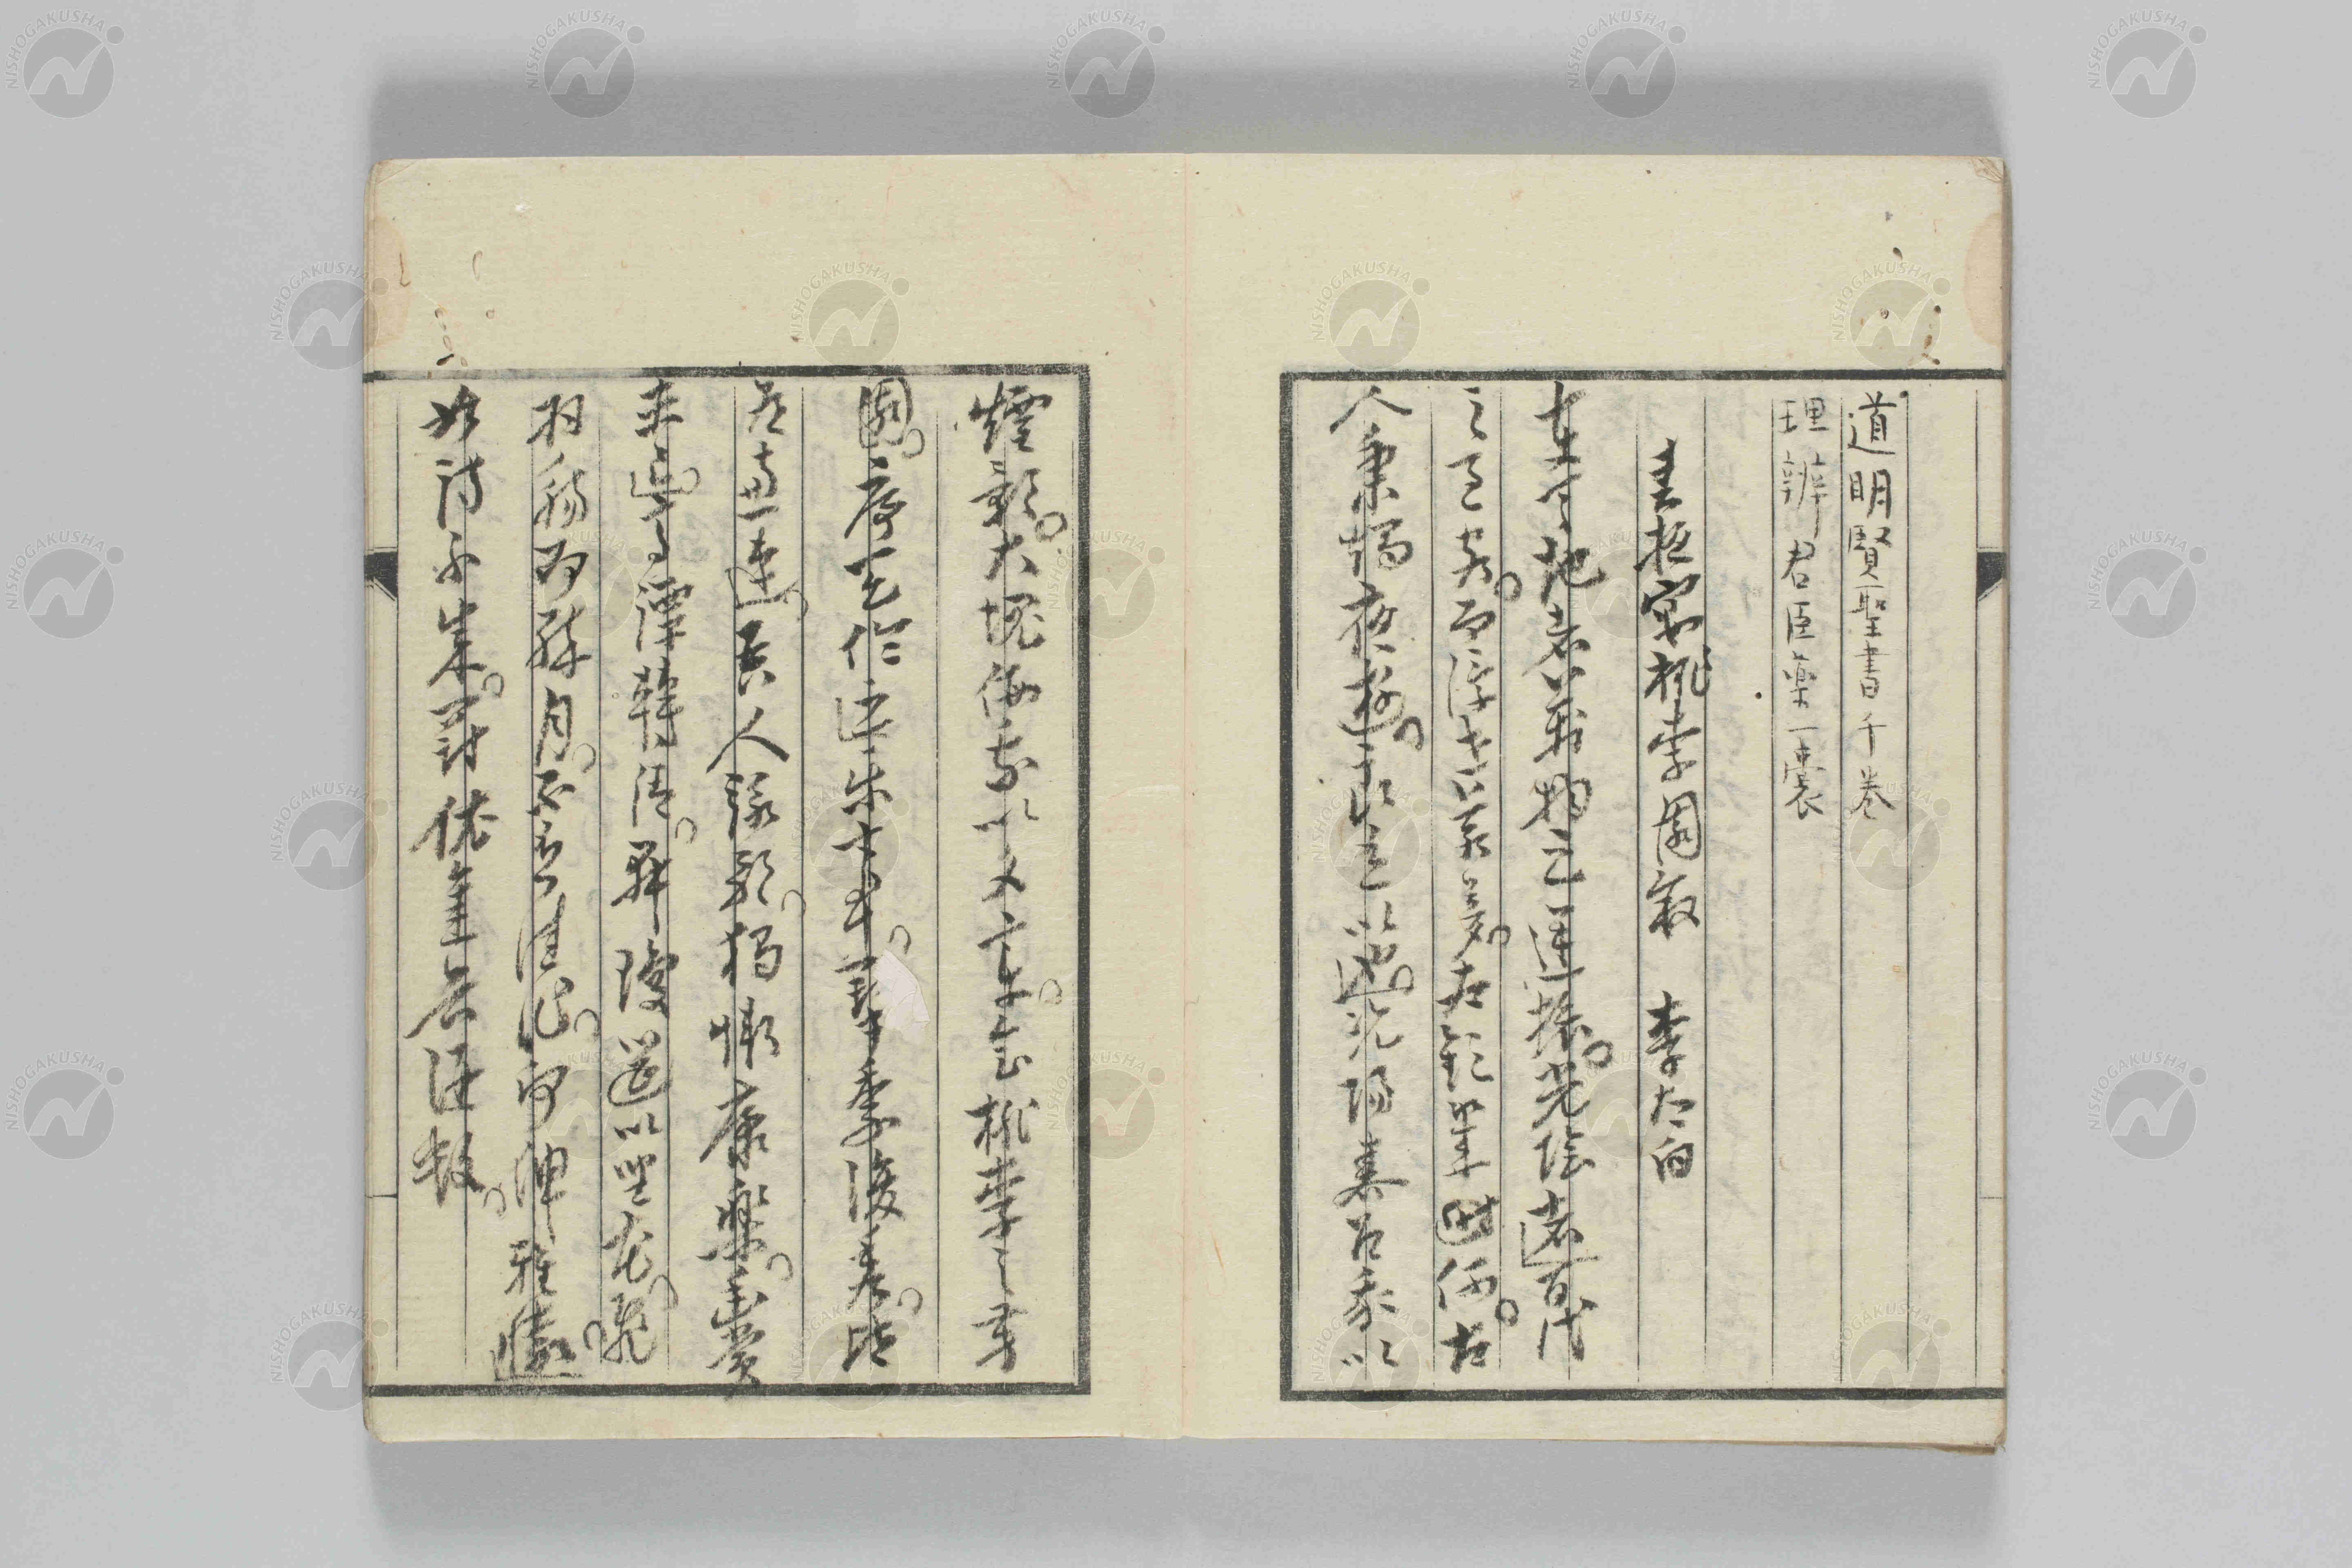 道明賢聖書千巻
理辨君臣薬一嚢
春夜宴桃李園叙 李太白
夫天地者萬物之逆旅。光陰者百代
之過客。而浮生若夢。為歡幾何。古
人秉燭夜遊。良有以也。況陽春召我以
煙景。大塊假我以文章。會桃李之芳
園。序天倫之樂事。群季俊秀。皆
為惠連。吾人詠歌。獨慚康樂。幽賞
未已。高談轉清。開瓊筵以坐花。飛
羽觴而醉月。不有佳作。何伸雅懷。
如詩不成。罰依金谷酒數。
NISHOGAKUSHA